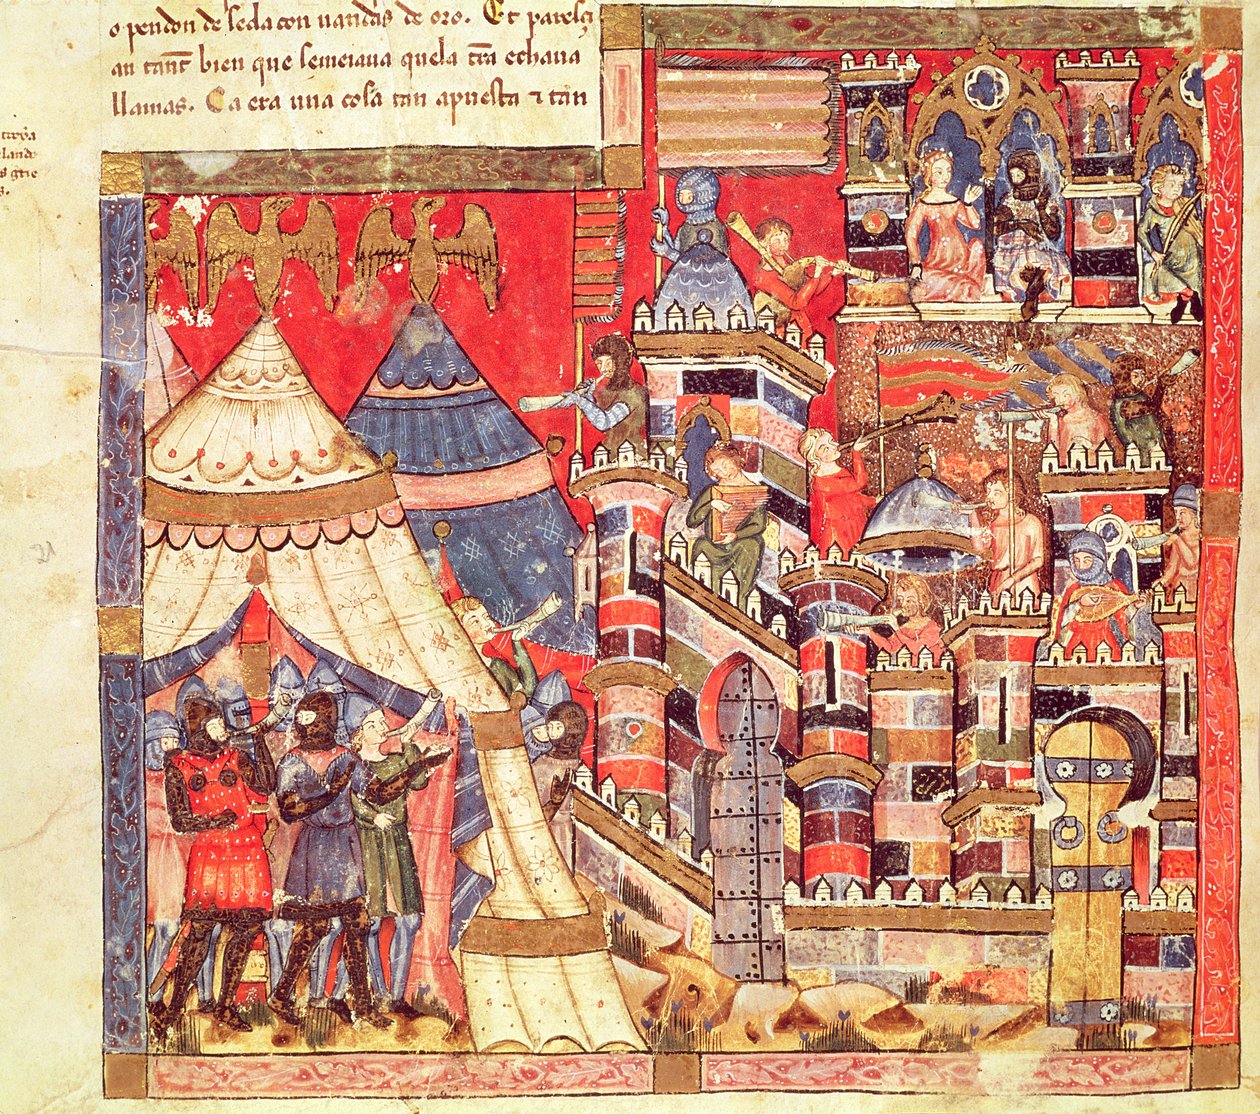 o pendon de seda con uandas de oro. Et paresçi
an tant bien que semeiaua que la tr̃a echaua
llamas. Ca era una cosa tan apuesta ⁊ tan